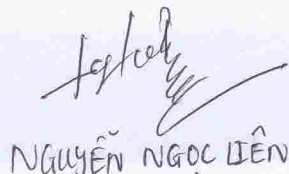 NGUYỄN NGỌC LIÊN